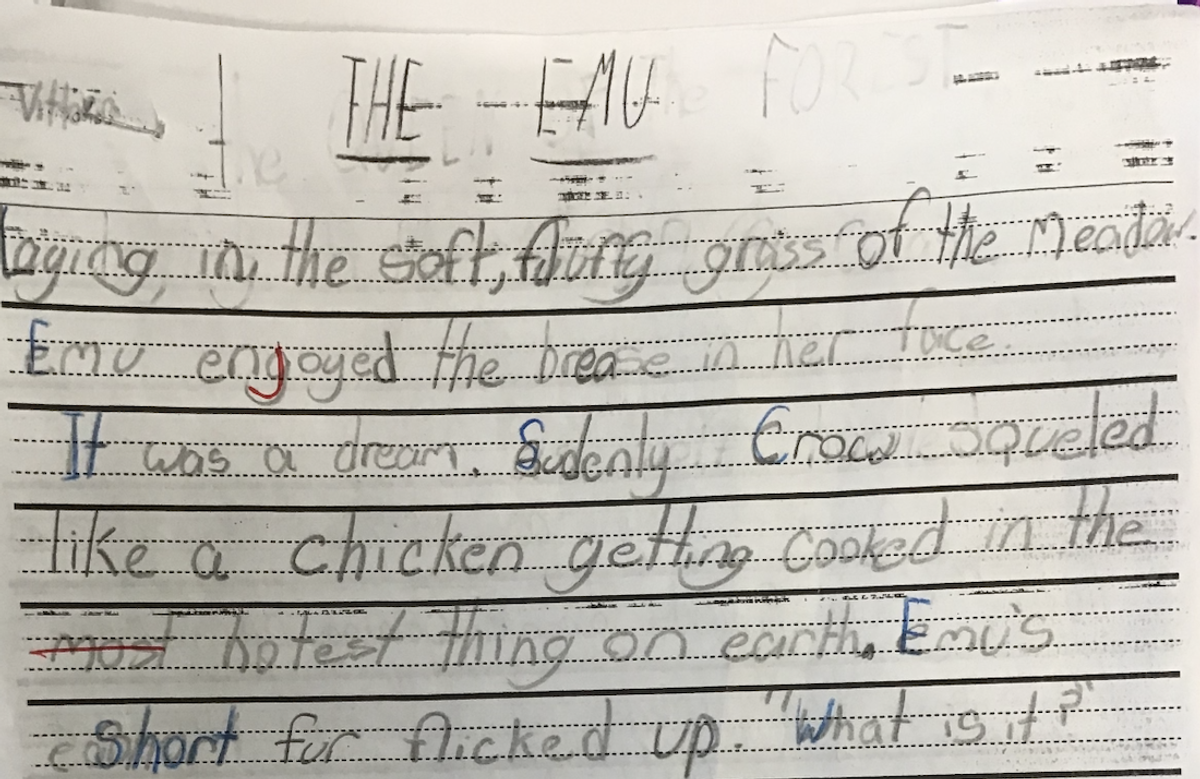 THE EMU
Laying, in, the soft, fluffy grass of the Meadow.
Emu engoyed the brease in her face.
It was a dream. Sudenly Crow squeled
like a chicken getting cooked in the
most hotest thing on earth. Emu's
short fur flicked up. "What is it?"